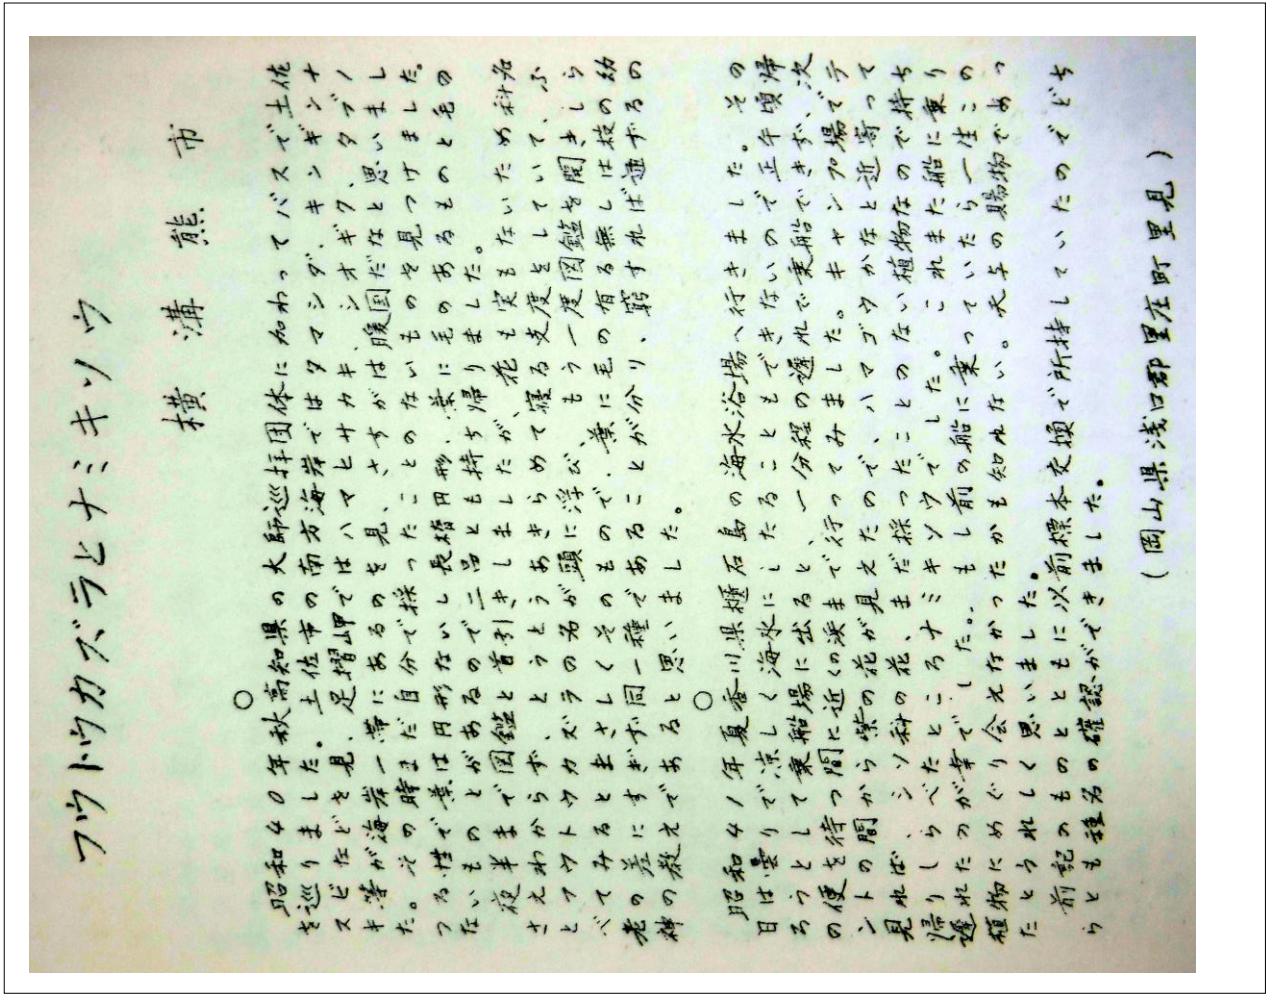 フウトウカズラとナミキソウ
横溝熊市
○
昭和40年秋高知県の大師巡拝団体に加わってバスで土佐
を巡りました。土佐市の南方海岸ではタマシダ、キンギンナ
スビなどを見、足摺岬ではハマヒサカキ、シオギク、タブノ
キ等が海岸一帯にあるのを見、さすがは暖国だなと思いまし
た。その時まだ自分で採ったことのないものを見つけました。
つる性で葉は円形ないし長楕円形、葉に毛のあるものと毛の
ないものとがあるので二品とも持ち帰りました。
夜半まで図鑑と首引きしましたが、花も実もないため科名
さえわからず、とうとうあきらめて寝る支度をしていて、ふ
とフウトウカズラの名が頭に浮び、もう一度図鑑を開きしら
べてみるとまさしくそのもので、葉に毛の有る無しは枝の幼
老の差にすぎず同一種であることが分り、窮すれば通ずるの
神の教えであると思いました。
○
昭和41年夏香川県櫃石島の海水浴場へ行きました。その
日は曇りで涼しく海水にしたることもできないので正午頃帰
ろうとして乗船場に出ると、一分程の遅れで乗船できず、次
の便を待つ間に近くの渓まで行ってみました。キャンプ場でテ
ントの間から紫の花が見えたので、ハマゴウかなと近寄って
見れば、シソ科の花、まだ採ったことのない植物なので持ち
帰りしらべたところナミキソウでした。これまた船に乗り
遅れたのが幸でした。もし前の船に乗っていたら一生この
植物にめぐり会えなかったかも知れない。天与の賜物であっ
たとうれしく思いました。
前記のものとともに以前標本交換で所持していたのでどち
らとも種名の確認ができました。
（岡山県浅口郡里庄町里見）